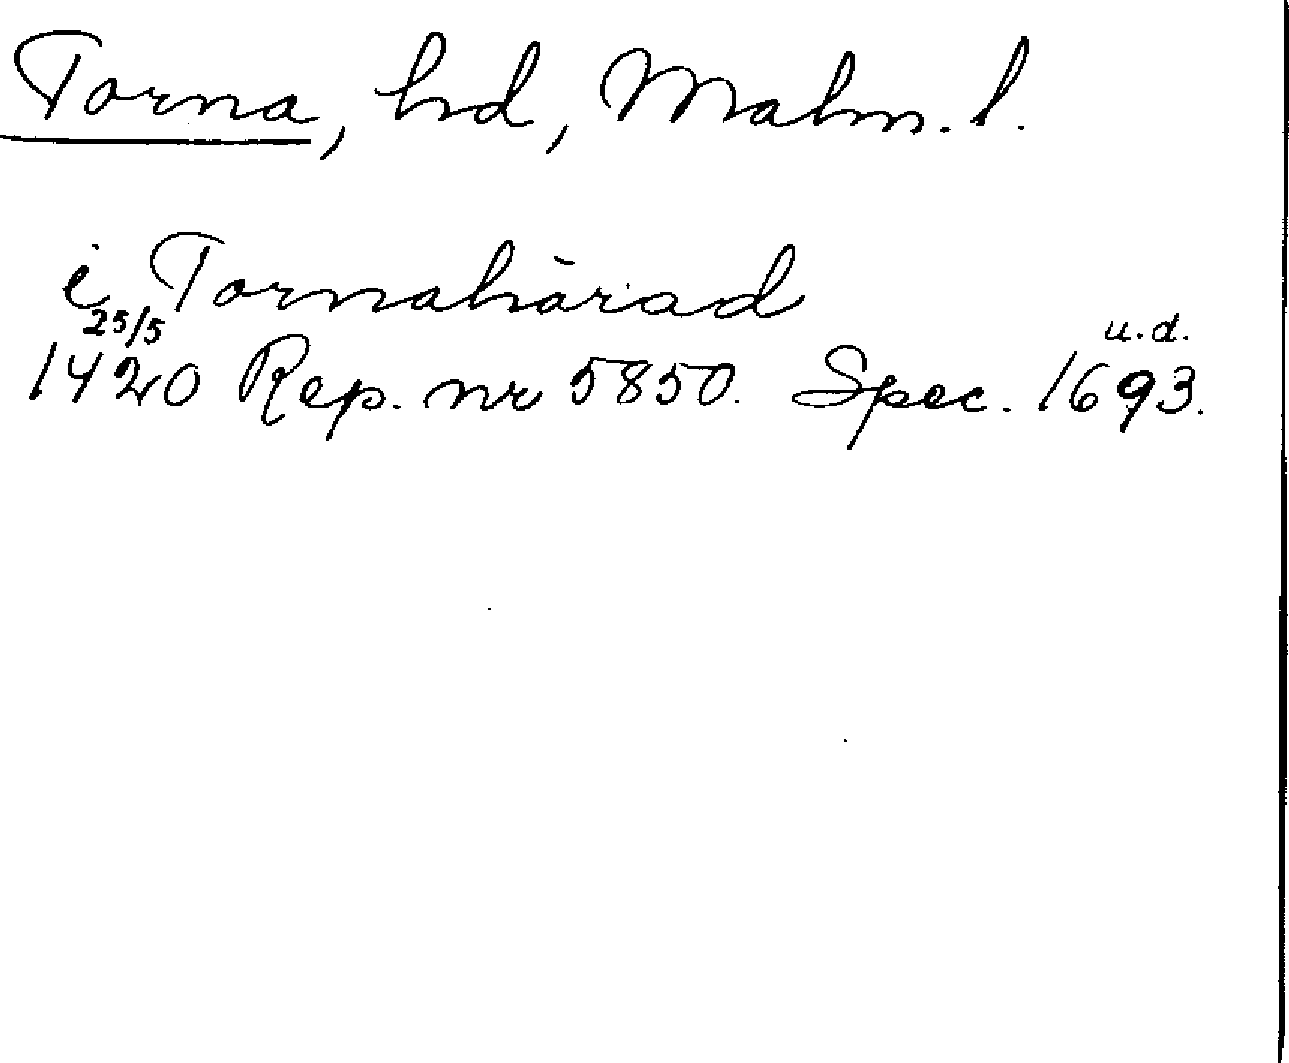 Torna, hd, Malm. l.
i Tornahärad
25/5 u.d.
1420 Rep. nr 5850. Spec. 1693.